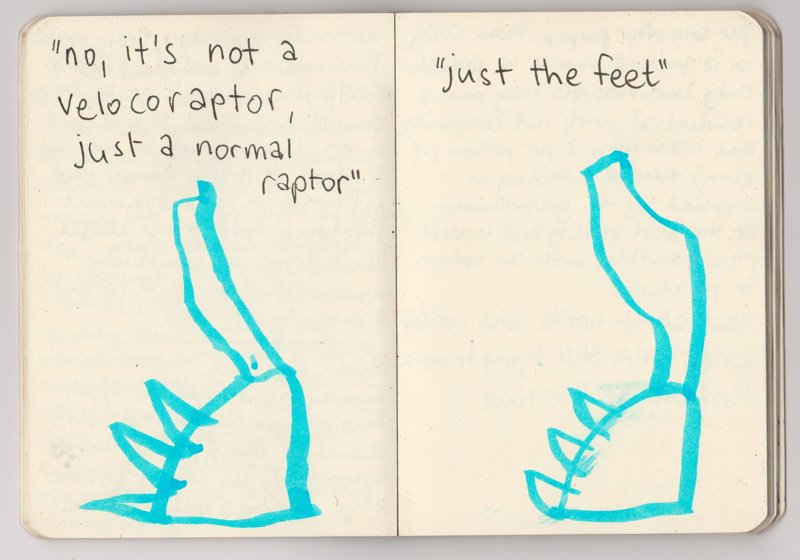 "no, it's not a
velocoraptor,
just a normal
raptor"
"just the feet"